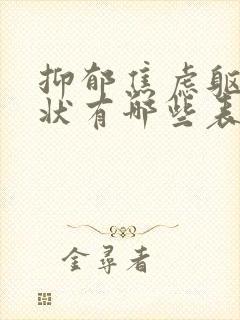 抑郁焦虑躯
状有哪些表
金尋者